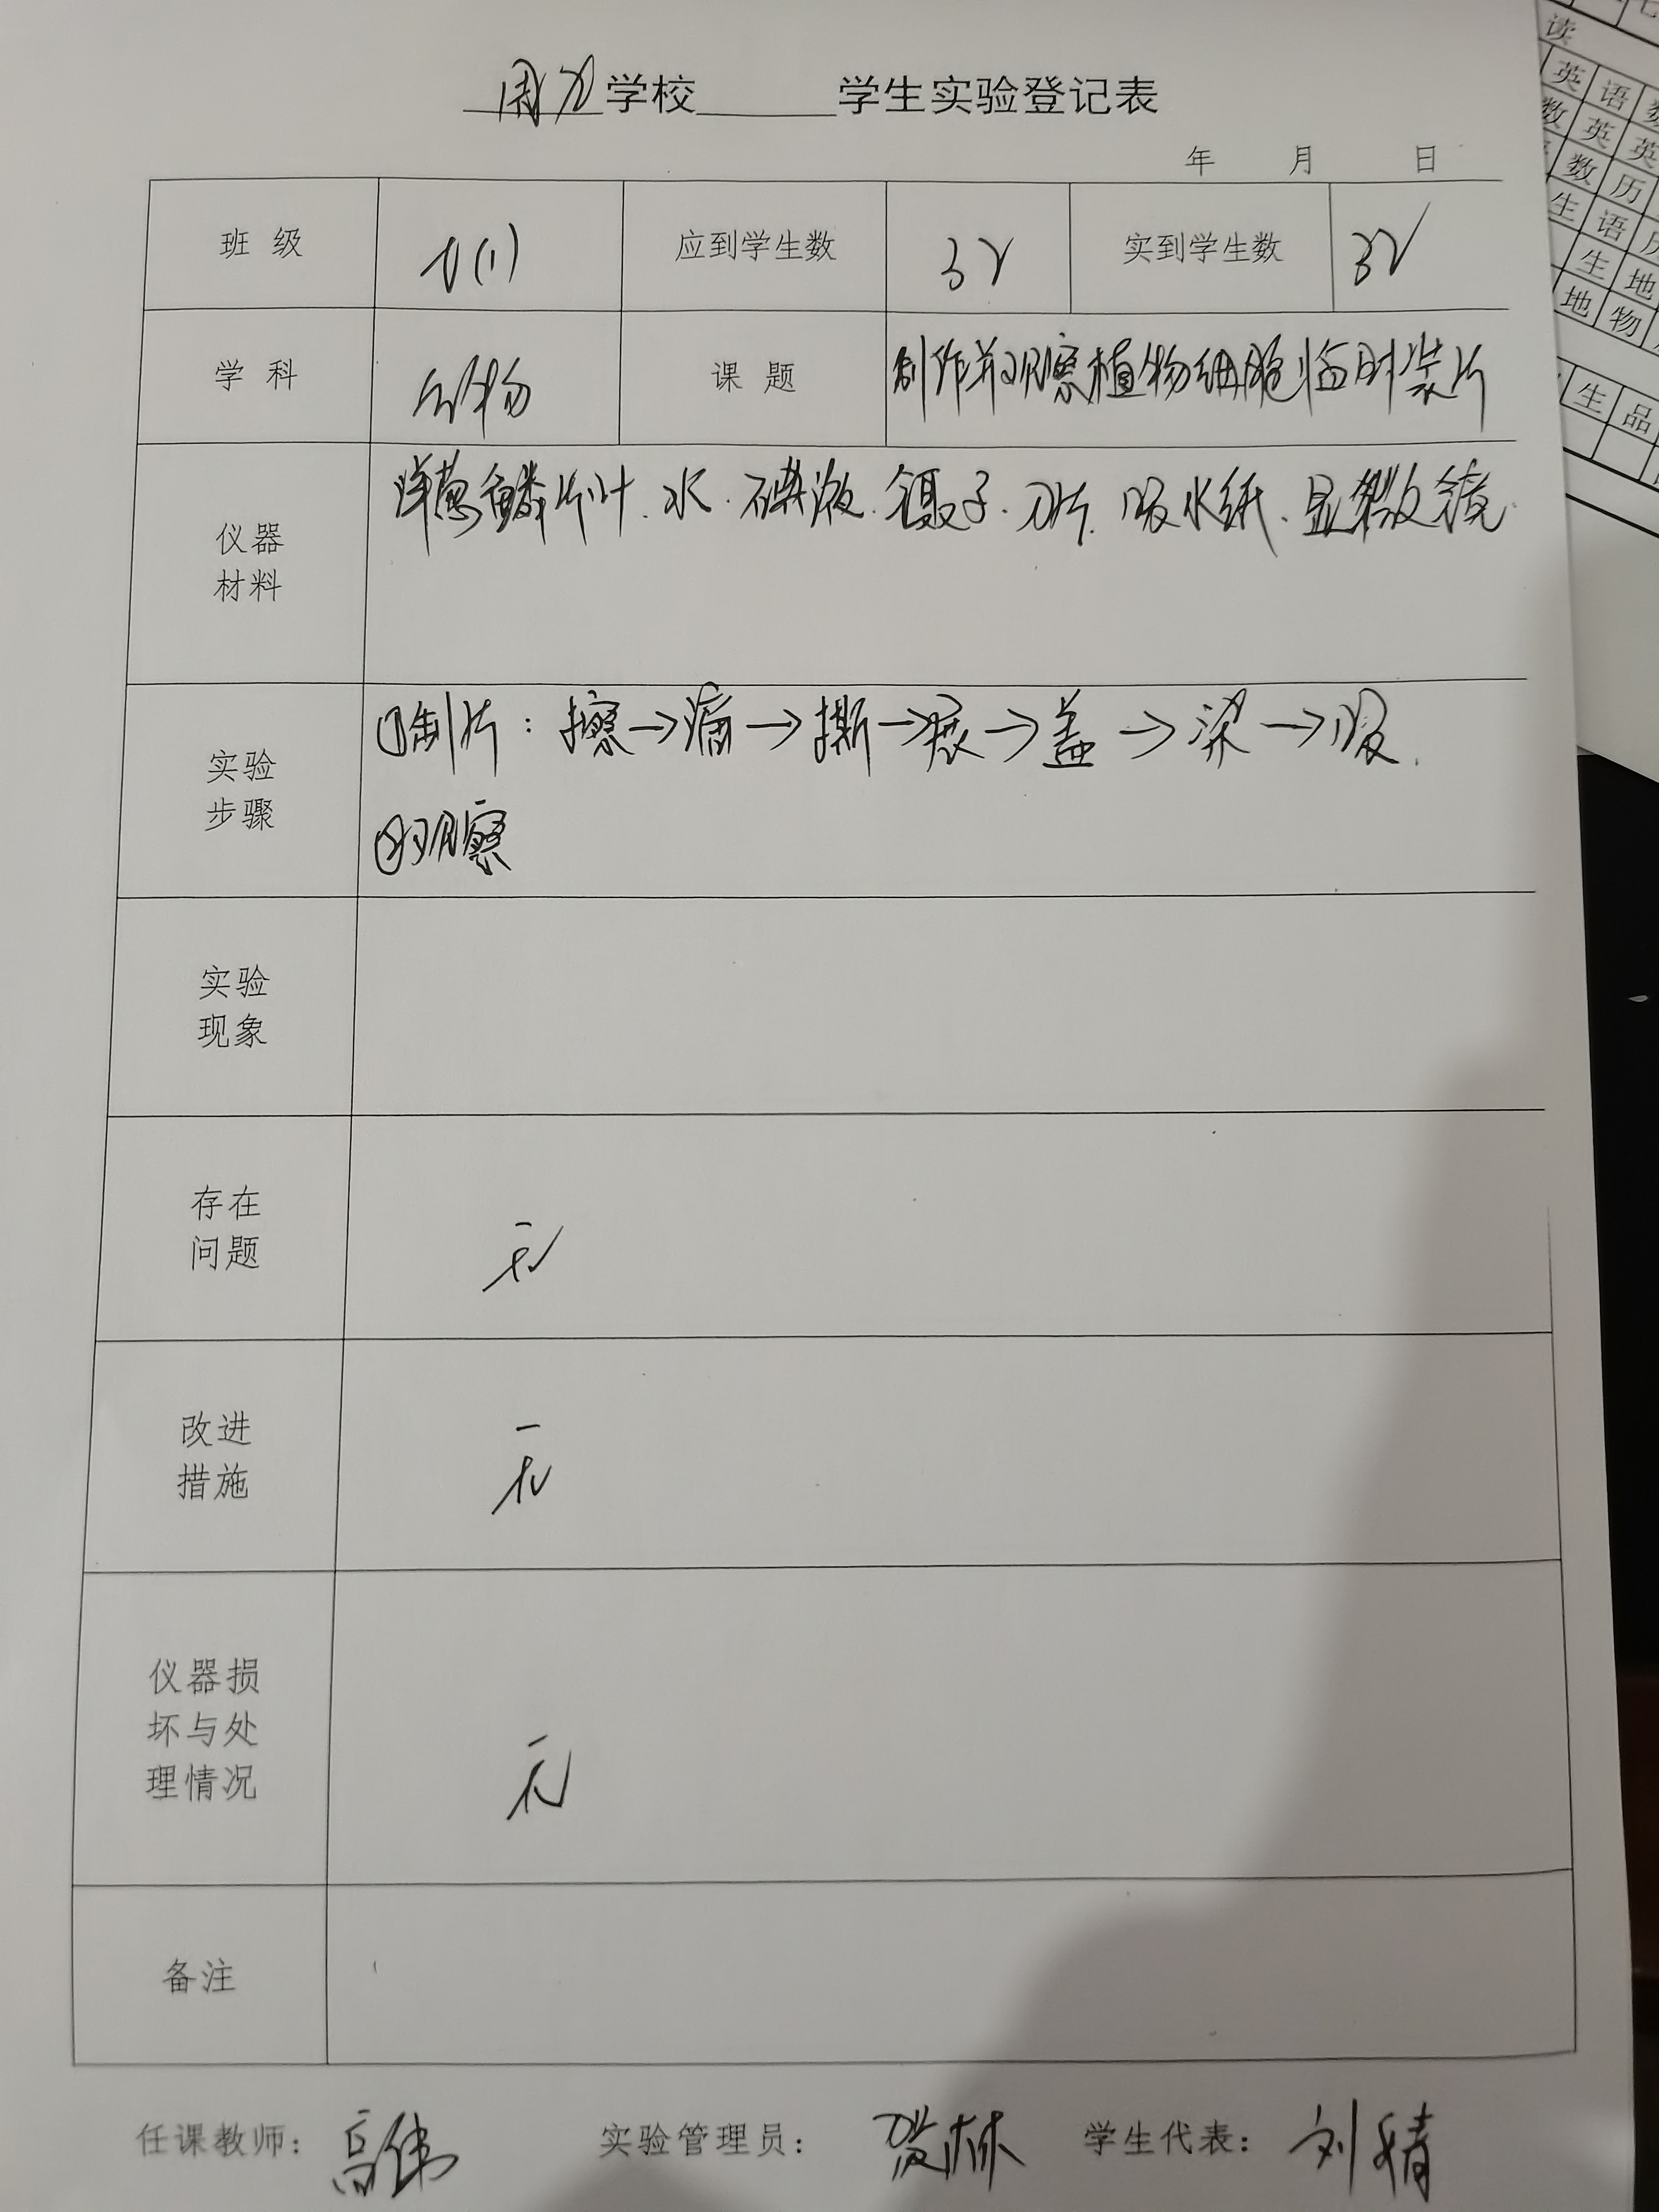 学校______学生实验登记表
年 月 日
班 级 七(1) 应到学生数 32 实到学生数 32
学 科 生物 课 题 制作并观察植物细胞临时装片
仪器
材料
洋葱鳞片叶.水.碘液.镊子.刀片.吸水纸.显微镜.
实验
步骤
①制片:擦→滴→撕→展→盖→染→吸.
②观察
实验
现象
存在
问题
无
改进
措施
无
仪器损
坏与处
理情况
无
备注
任课教师:高伟 实验管理员: 学生代表:刘婧
读
英 语
数 英 英
数 历
生 语 历
生 地
地 物
生 品